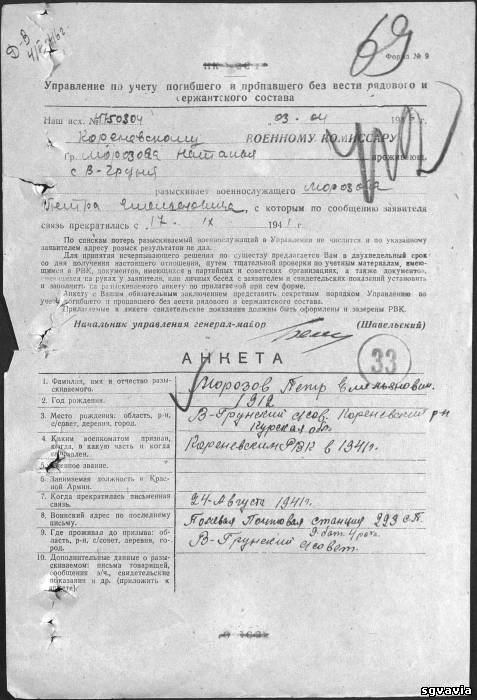 69
Форма № 9
Управление по учету погибшего и пропавшего без вести рядового и
сержантского состава
Наш исх. №
03. 04 194 г.
Кореневскому ВОЕННОМУ КОМИССАРУ
Гр. Морозова Наталья проживающ.
с В-Груня
разыскивает военнослужащего Морозова
Петра Емельяновича, с которым по сообщению заявителя
связь прекратилась с 17. IX 1941 г.
По спискам потерь разыскиваемый военнослужащий в Управлении не числится и по указанному
заявителем адресу розыск результатов не дал.
Для принятия исчерпывающего решения по существу предлагается Вам в двухнедельный срок
со дня получения настоящего отношения, путем тщательной проверки по учетным материалам, имею-
щимся в РВК, документов, имеющихся в партийных и советских организациях, а также документов,
имеющихся на руках у заявителя, или личных бесед с заявителем и свидетельских показаний установить и
заполнить на разыскиваемого анкету по прилагаемой при сем форме.
Анкету с Вашим обязательным заключением представить секретным порядком Управлению по
учету погибшего и пропавшего без вести рядового и сержантского состава.
Прилагаемые к анкете свидетельские показания должны быть оформлены и заверены РВК.
Начальник управления генерал-майор (Шавельский)
АНКЕТА
33
1. Фамилия, имя и отчество разы-
скиваемого. Морозов Петр Емельянович.
2. Год рождения. 1912
3. Место рождения: область, р-н,
с/совет, деревня, город. В-Грунский с/сов. Кореневский р-н
Курская обл.
4. Каким военкоматом призван,
когда, в какую часть и когда
Кореневским РВК в 1941г.
5. звание.
6. Занимаемая должность в Крас-
ной Армии.
7. Когда прекратилась письменная
связь. 24 Августа 1941г.
8. Воинский адрес по последнему
письму. Полевая Почтовая станция 293 с.п.
9. Где проживал до призыва: об-
ласть, р-н, с/совет, деревня, го-
род. В-Грунский с/совет.
10. Дополнительные данные о разы-
скиваемом: письма товарищей,
сообщения в/ч, свидетельские
показания и др. (приложить к
анкете):
sgvavia